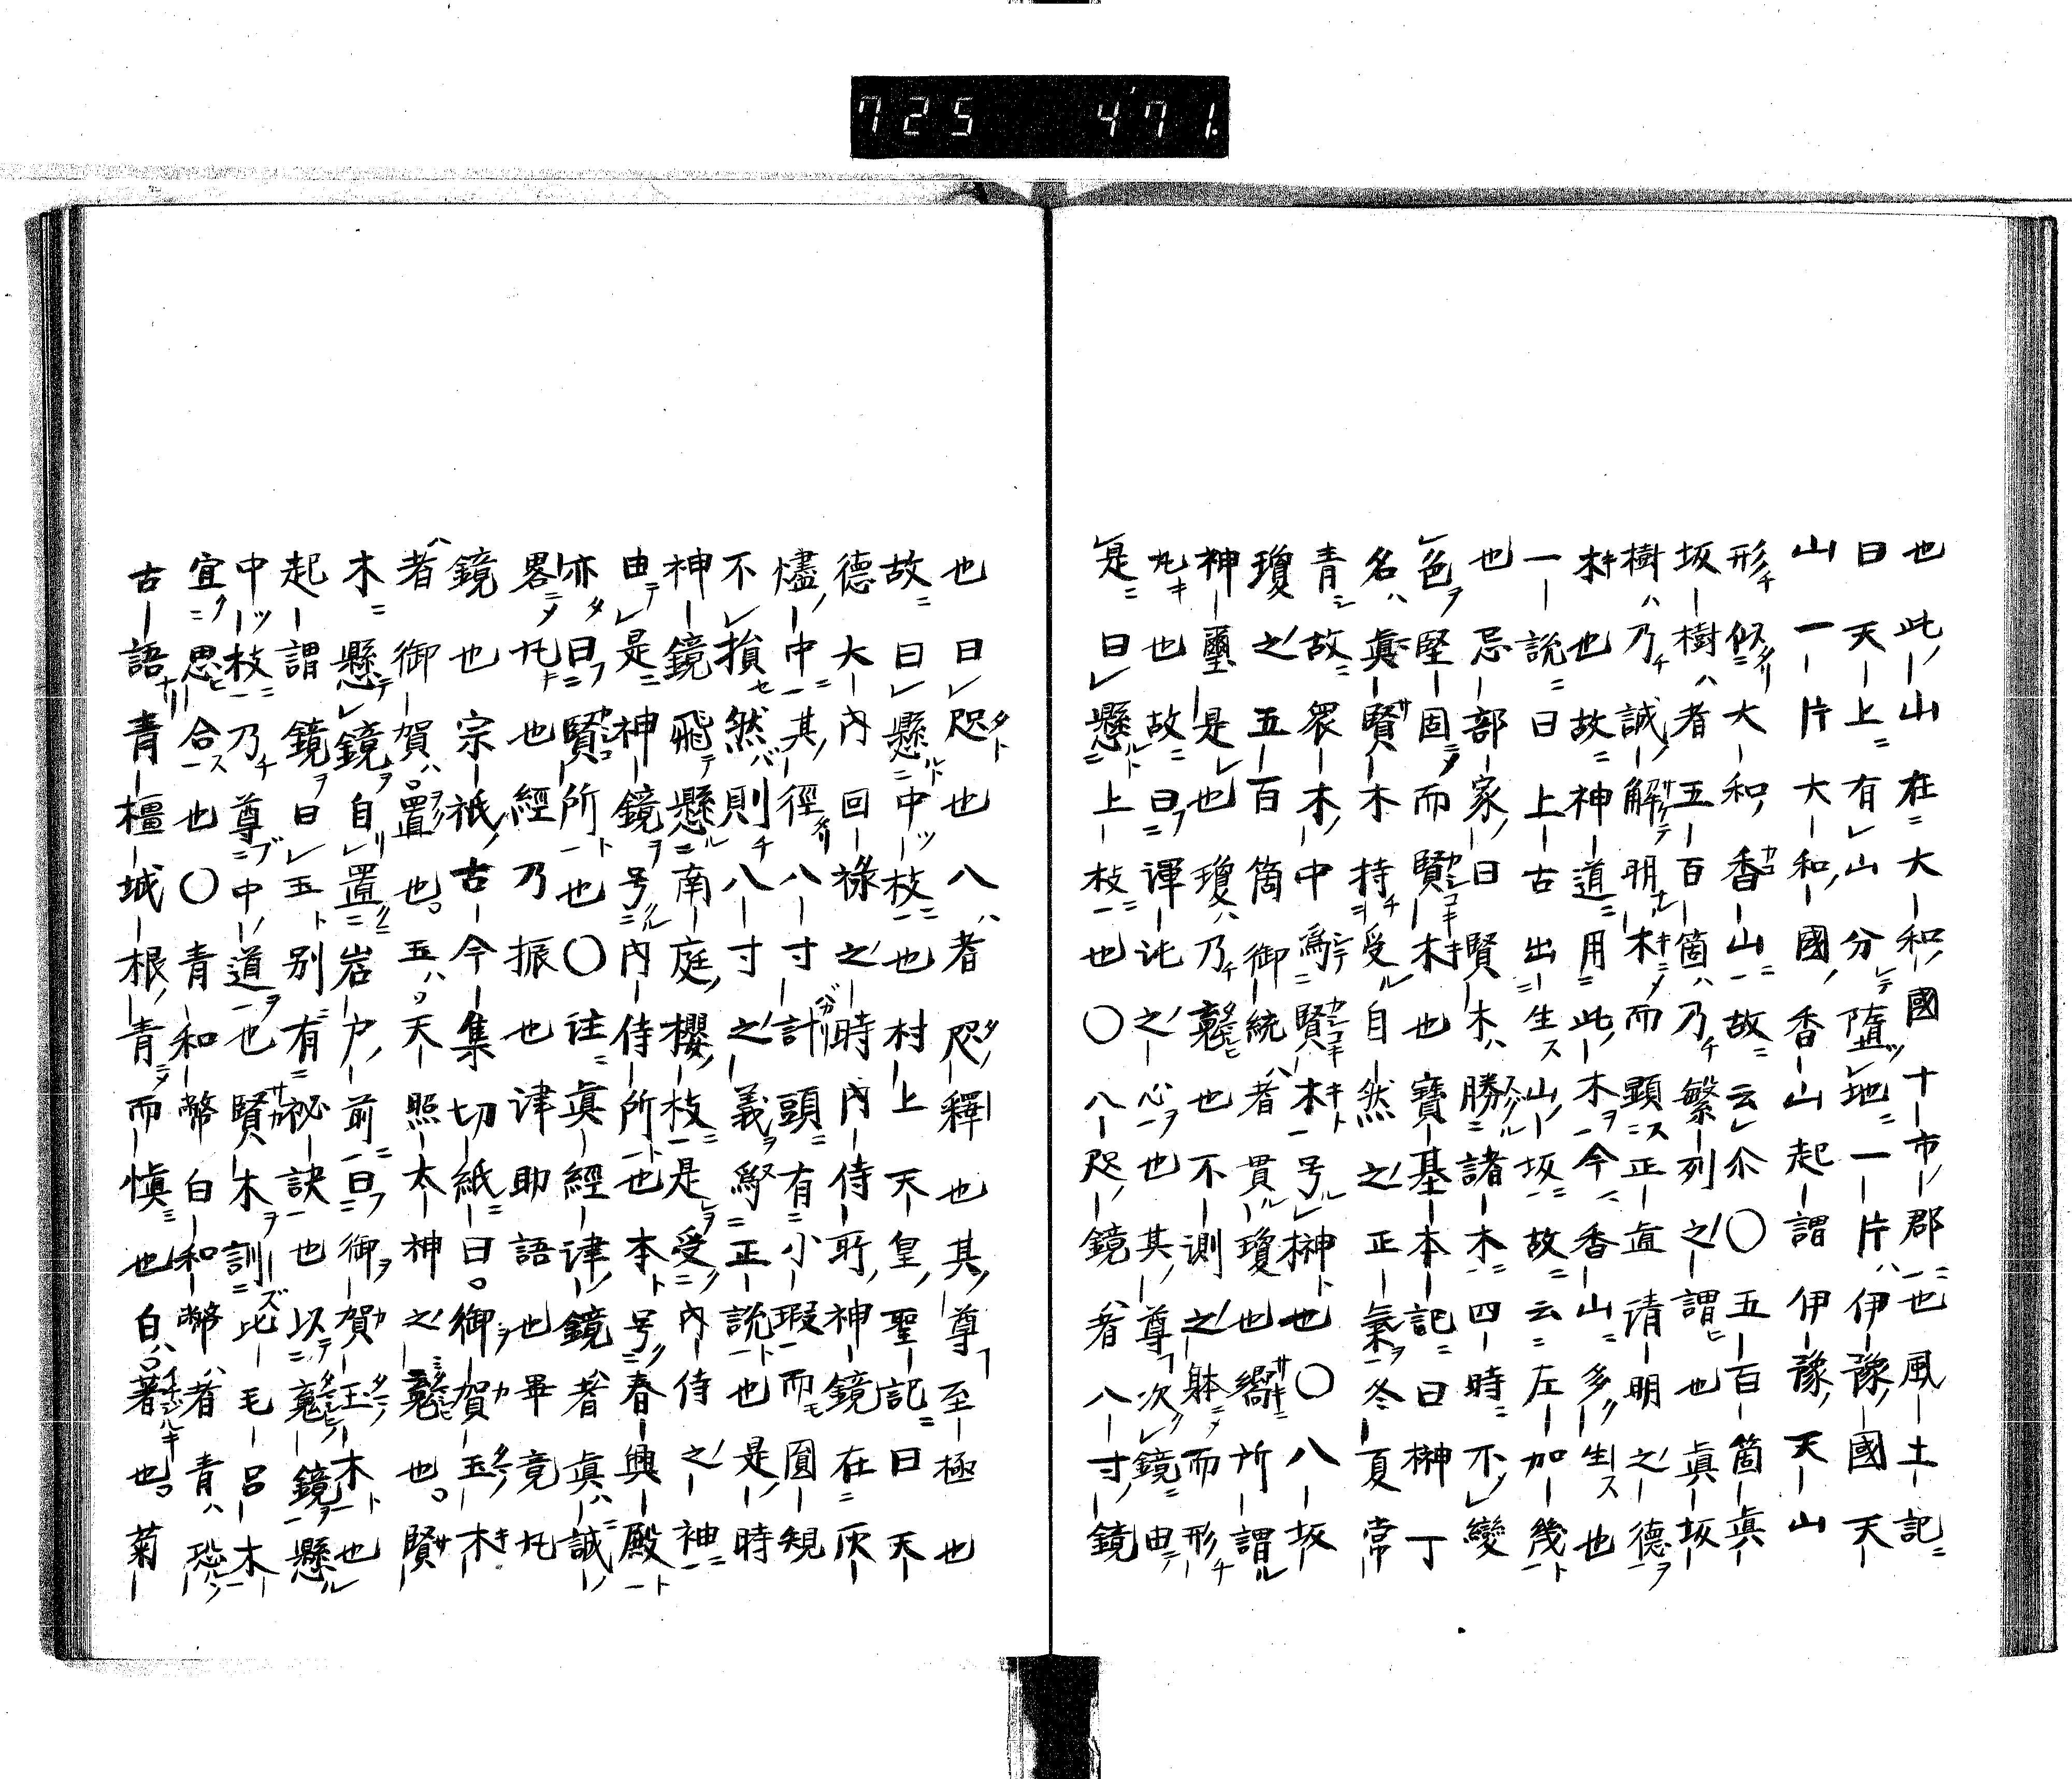 725 4'71.
也此山在大和國十市郡也風土記
曰天上有山分墮地一片伊豫國天
山一片大和國香山起謂伊豫天山
形似大和香山故云尒〇五百箇真
坂樹者五百箇乃繁列之謂也真坂
樹乃誠解明木而顕正直清明之德
木也故神道用此木今香山多生也
一說曰上古出生山坂故云左加幾
也忌部家曰賢木勝諸木四時不變
色堅固而賢木也寶基本記曰榊丁
名真賢木持受自然之正氣冬夏常
青故衆木中為賢木号榊也〇八坂
瓊之五百箇御統者貫瓊也嚮所謂
神璽是也瓊乃䰟也不測之躰而形
也故曰渾沌之心也其尊次鏡由
是曰懸上枝也〇八咫鏡者八寸鏡
也曰咫也八者咫釋也其尊至極也
故曰懸中枝也村上天皇聖記曰天
德大內回祿之時內侍所神鏡在灰
燼中其徑八寸計頭有小瑕而圓規
不損然則八寸之義為正說也是時
神鏡飛懸南庭櫻枝是受內侍之袖
由是神鏡号內侍所也本号春興殿
亦曰賢所也〇註真經津鏡者真誠
畧也經乃振也津助語也畢竟
鏡也宗祇古今集切紙曰御賀玉木
者御賀置也五天照太神之䰟也賢
木懸鏡自置岩户前曰御賀玉木也
起謂鏡曰五別有祕訣也以䰟鏡懸
中枝乃尊中道也賢木訓比毛呂木
宜思合也〇青和幣白和幣者青恐
古語青橿城根青而愼也白著也菊